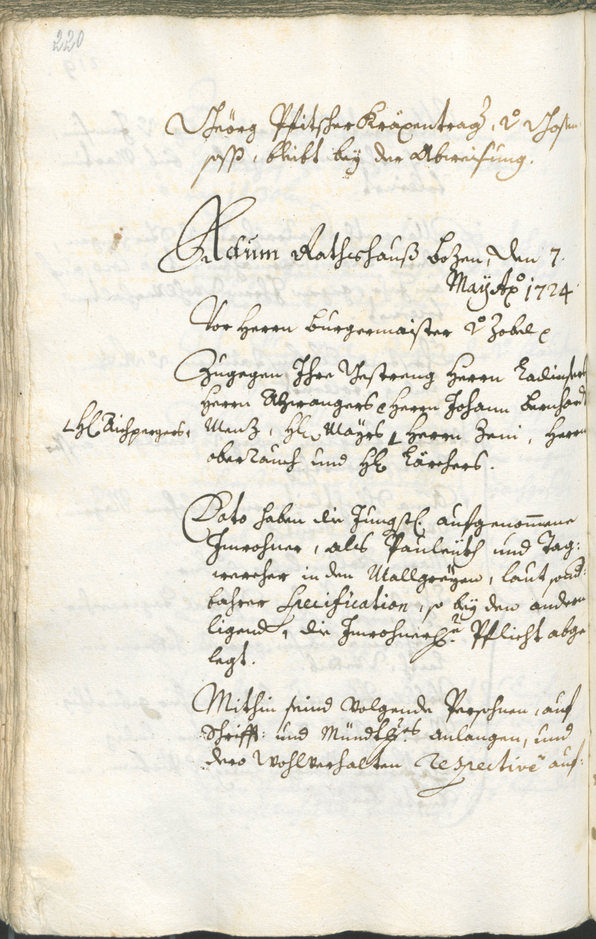 220
Geörg Pfitscher Kräxentrag,
sess, bleibt bey der Abweisung.
Actum Rathshauß Bozen, den 7.
May Ao 1724
Vor Herrn Burgermaister v Zobel
Zugegen Ihro Gestreng Herrn
Herrn Azwangers Herrn Johann Bernhard
Menz, Hl. Mayrs Herrn Zeni, Herrn
Hl. Aichpergers,
oberrauch und Hl. Kärchers.
Dato haben die Jungst aufgenommene
Inwohner, als Pauleüth und Tag-
wercher in den Mallgreyen, laut sond-
bahrer Specification, so bey den andern
ligend, die Inwohner Pflicht abge
legt.
Mithin seind volgende Persohnen, auf
Schrifft- und Mündliches anlangen, und
dero Wohlverhalten respective auf-